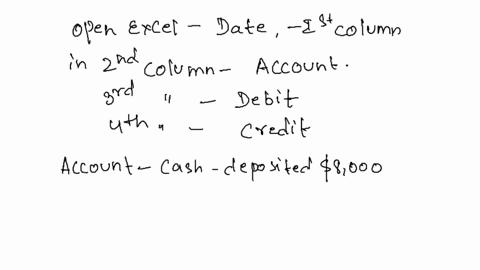 open Excel - Date, - 1st column
in 2nd column - Account.
3rd " - Debit
4th " - Credit
Account - Cash - deposited $8,000